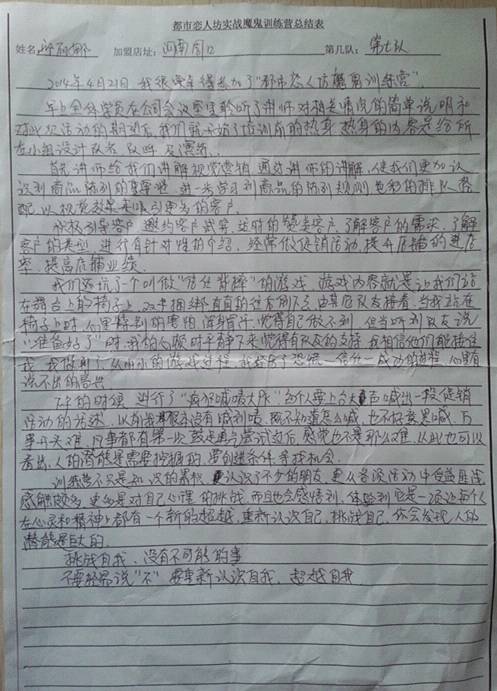 都市恋人坊实战魔鬼训练营总结表
姓名 加盟店址：河南周口 第几队：第七队
2014年4月21日 我很荣幸得参加了"都市恋人坊魔鬼训练营"
早上全体学员在会议室里聆听了讲师对相关情况的简单说明和
对此次活动的期望后，我们就开始了培训前的热身，热身的内容是给所
在小组设计队名 队呼 及
首先讲师给我们讲解视觉营销 通过讲师的讲解，使我们更加认
识到商品陈列的重要性 进一步学习到商品的陈列规则 色彩的排队 搭
配，以视觉效果来吸引更多的客户
积极引导客户 邀约客户试穿，适时的赞美客户，了解客户的需求，了解
客户的类型，进行有针对性的介绍，经常做促销活动，提高店铺的进店
率，提高店铺业绩。
我们还玩了个叫做"信任背摔"的游戏，游戏内容就是让我们站
在舞台上的椅子上，双手捆绑 直直的往后倒下去 由其后队友接着，当我站在
椅子上时 心里特别的害怕 浑身冒汗，觉得自己做不到，但当听到队友说
"准备好了"时，我的心居然平静下来 觉得有队友的支持 我相信他们能接住
我 我做到了，从小小的游戏过程 我经历了恐慌—信任—成功的过程 心里有
说不出的喜悦
下午的时候 进行了"疯狂喊麦大胆" 每个人要上台大声喊出一段促销
活动的话述，以前我根本没有喊过麦，既不知道怎么喊，也不好意思喊，万
事开头难，凡事都有第一次 鼓足勇气尝试过后，感觉也不是那么难，从此也可以
看出，人的潜能是需要挖掘的 要创造条件 寻找机会
训练营不只是知识的累积，认识了不少的朋友，更从各项活动中受益匪浅
感触颇多 更多的是对自己心理的挑战，而且也会感悟到，体验到它是一项让每个人
在心灵和精神上都有一个新的超越，重新认识自己，挑战自己，你会发现，人的
潜能是巨大的。
挑战自我，没有不可能的事
不要轻易说"不" 要重新认识自我，超越自我